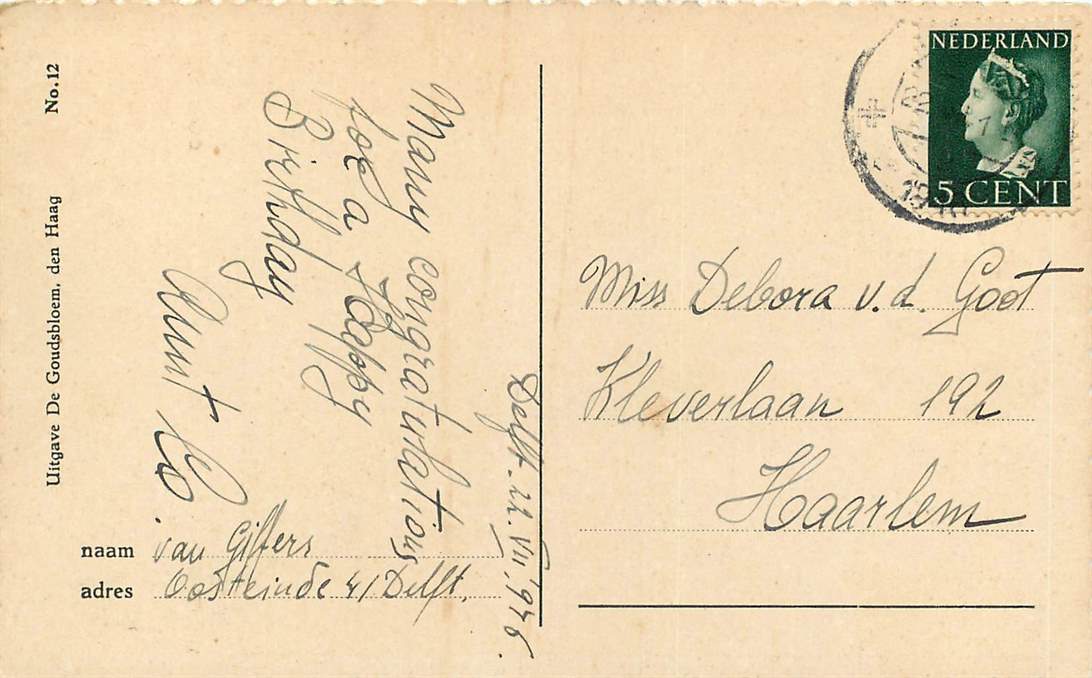 No. 12
Uitgave De Goudsbloem, den Haag
Delft. 22. VII. 1946.
Many congratulations
for a Happy
Birthday
Aunt Co.
naam van Giffers
adres Oosteinde 41 Delft.
NEDERLAND
5 CENT
Miss Debora v. d. Goot
Kleverlaan 192
Haarlem